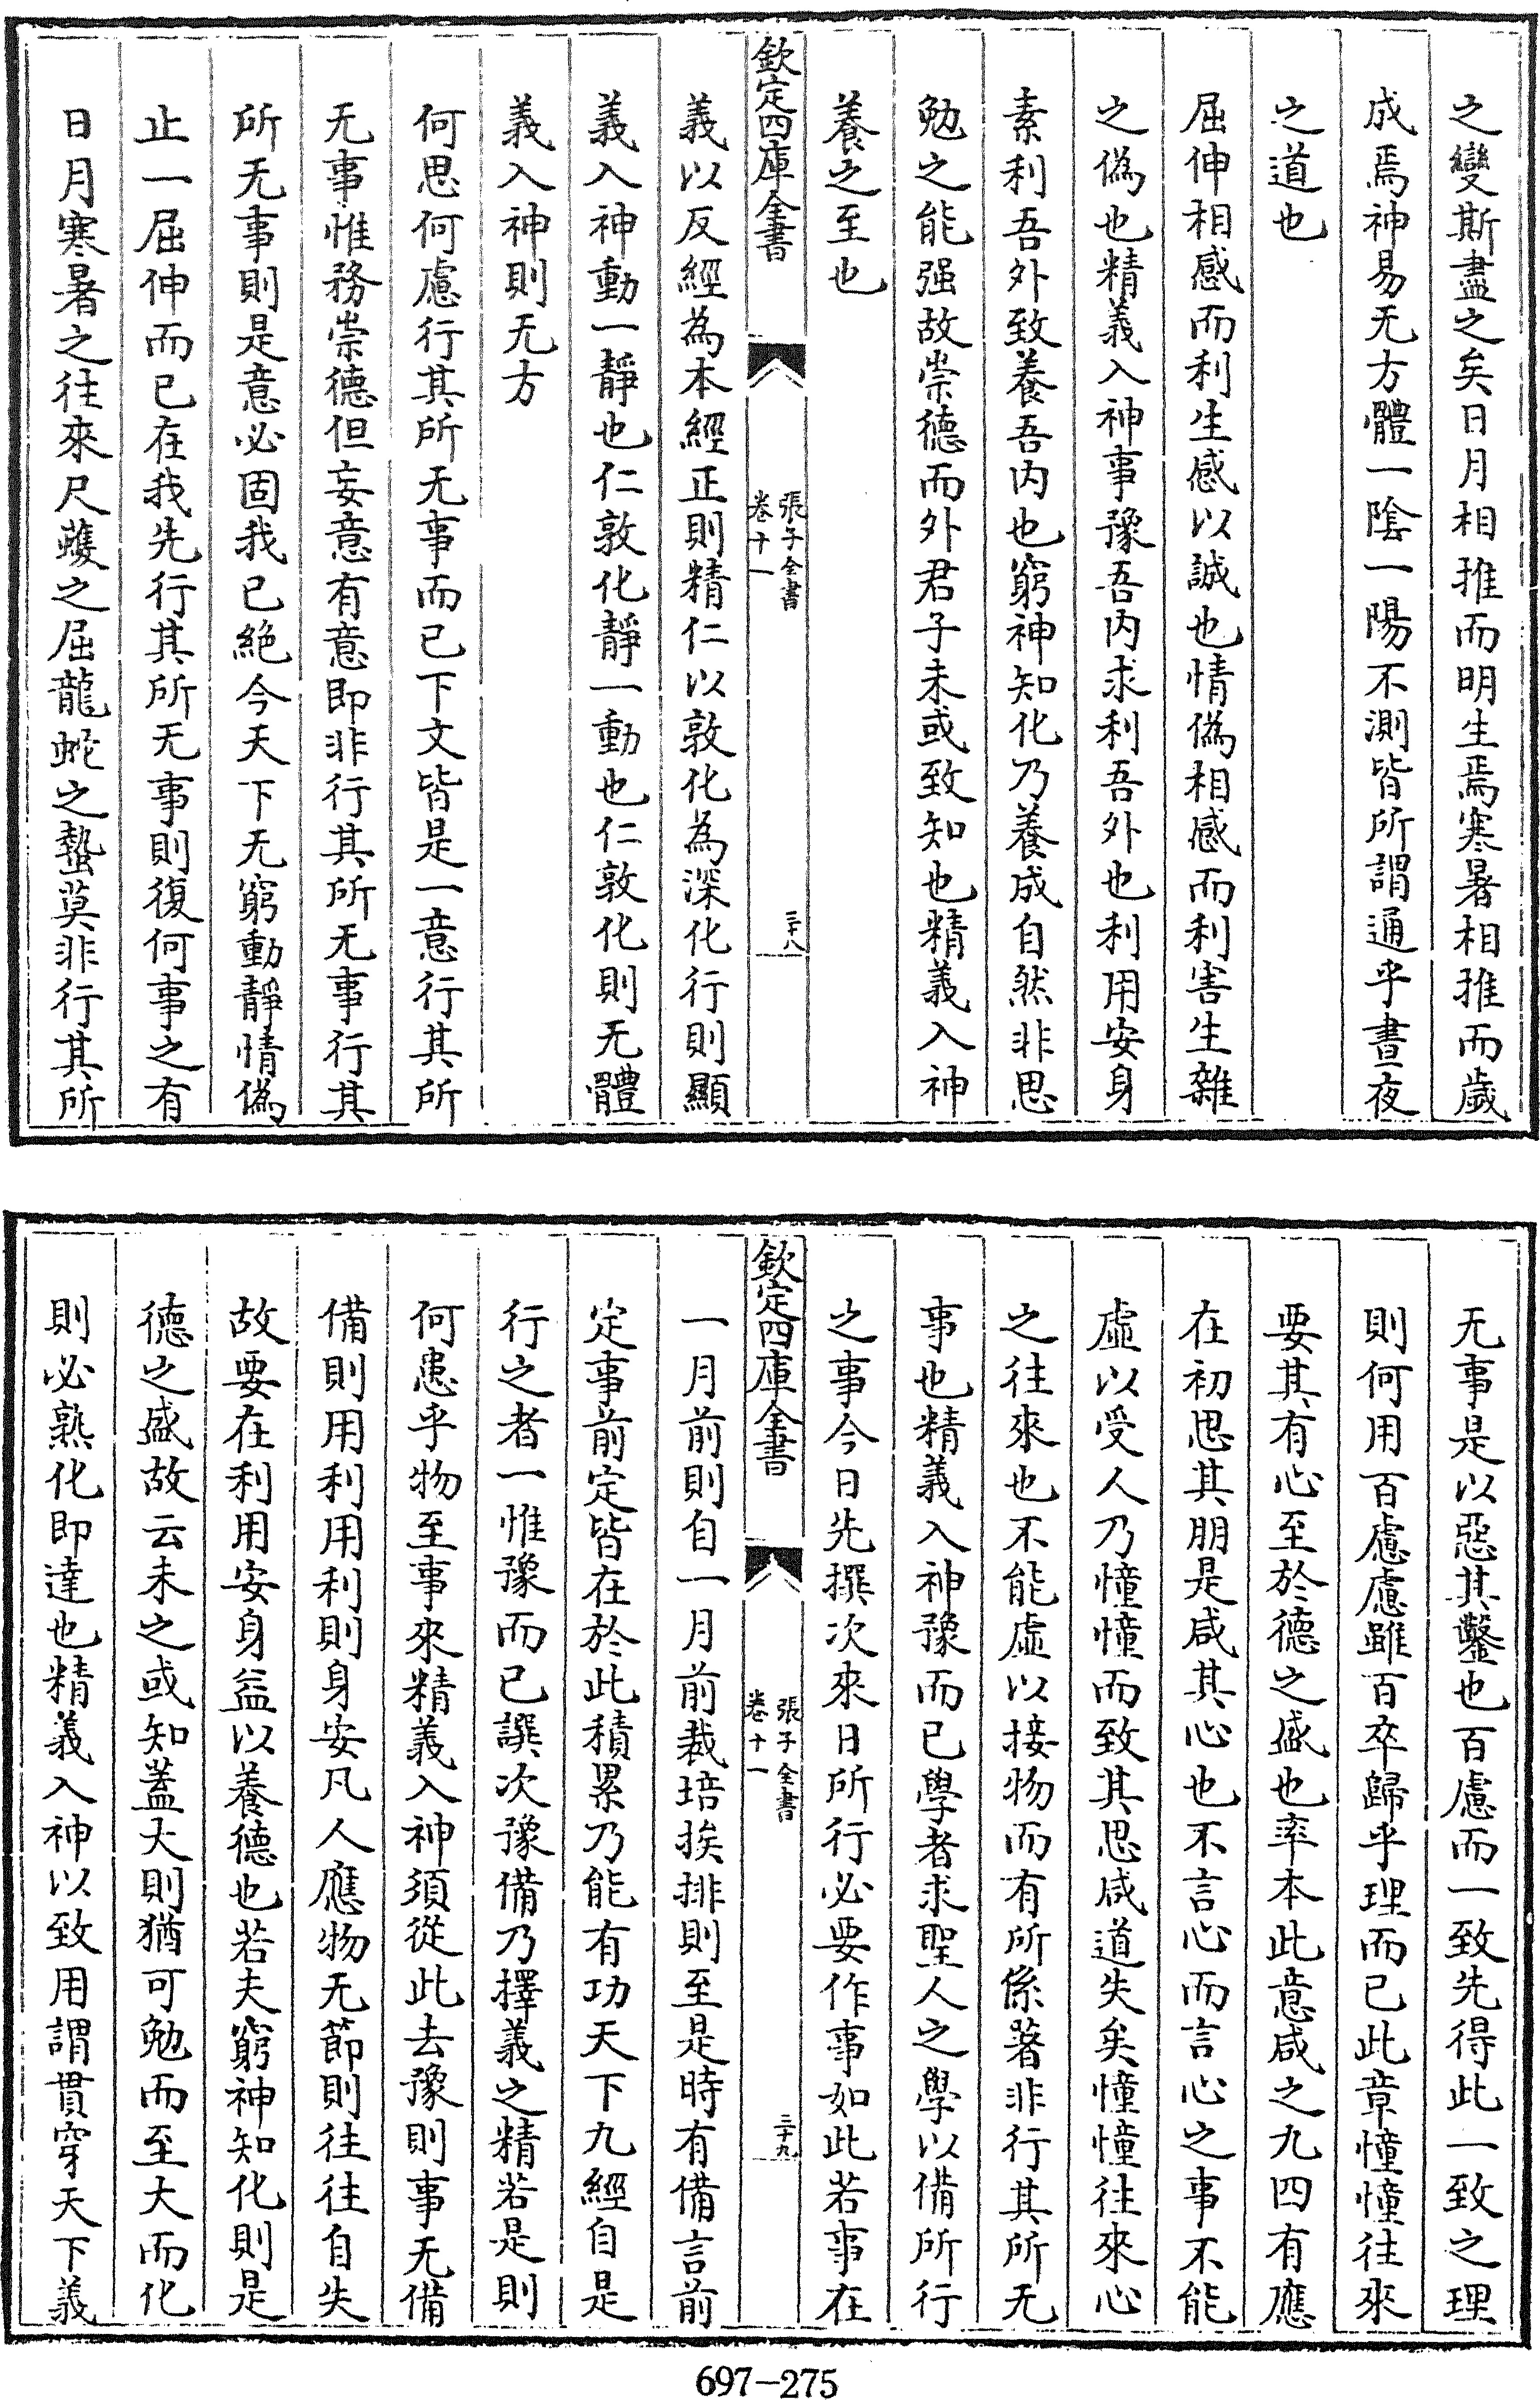 之變斯盡之矣日月相推而明生焉寒暑相推而歲
成焉神易无方體一陰一陽不測皆所謂通乎晝夜
之道也
屈伸相感而利生感以誠也情偽相感而利害生雜
之偽也精義入神事豫吾内求利吾外也利用安身
素利吾外致養吾内也窮神知化乃養成自然非思
勉之能强故崇德而外君子未或致知也精義入神
養之至也
欽定四庫全書
張子全書
卷十一
三十八
義以反經為本經正則精仁以敦化為深化行則顯
義入神動一靜也仁敦化靜一動也仁敦化則无體
義入神則无方
何思何慮行其所无事而已下文皆是一意行其所
无事惟務崇德但妄意有意即非行其所无事行其
所无事則是意必固我已絶今天下无窮動靜情偽
止一屈伸而已在我先行其所无事則復何事之有
日月寒暑之往來尺蠖之屈龍蛇之蟄莫非行其所
无事是以惡其鑿也百慮而一致先得此一致之理
則何用百慮慮雖百卒歸乎理而已此章憧憧往來
要其有心至於德之盛也率本此意咸之九四有應
在初思其朋是咸其心也不言心而言心之事不能
虛以受人乃憧憧而致其思咸道失矣憧憧往來心
之往來也不能虛以接物而有所係著非行其所无
事也精義入神豫而已學者求聖人之學以備所行
之事今日先撰次來日所行必要作事如此若事在
欽定四庫全書
張子全書
卷十一
三十九
一月前則自一月前裁培挨排則至是時有備言前
定事前定皆在於此積累乃能有功天下九經自是
行之者一惟豫而已譔次豫備乃擇義之精若是則
何患乎物至事來精義入神須從此去豫則事无備
備則用利用利則身安凡人應物无節則往往自失
故要在利用安身益以養德也若夫窮神知化則是
德之盛故云未之或知蓋大則猶可勉而至大而化
則必熟化即達也精義入神以致用謂貫穿天下義
697-275